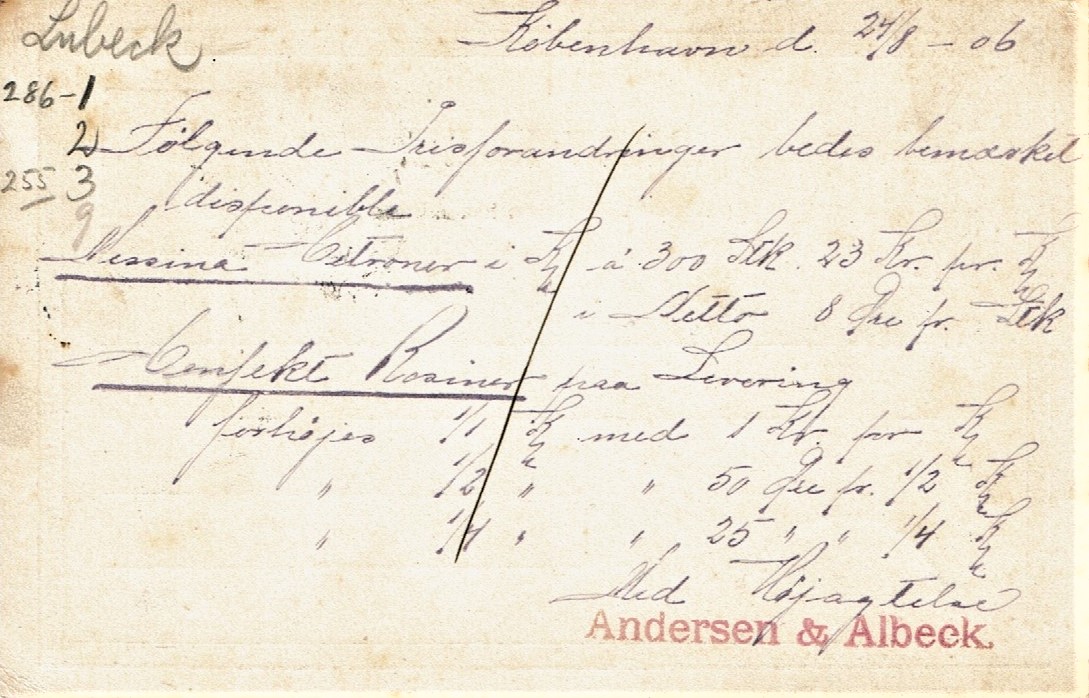 Lubeck
København d. 24/8 - 06
286-1
2
Følgende Prisforandringer bedes bemærket
255 3
disponible
9
Messina Citroner i Ks à 300 Stk. 23 Kr. pr. Ks
i Netto 8 Øre pr. Stk
Confekt Rosiner paa Levering
forhøjes 1/1 Ks med 1 Kr. pr Ks
" 1/2 " " 50 Øre pr. 1/2 Ks
" 1/4 " " 25 " " 1/4 Ks
Med Højagtelse
Andersen & Albeck.